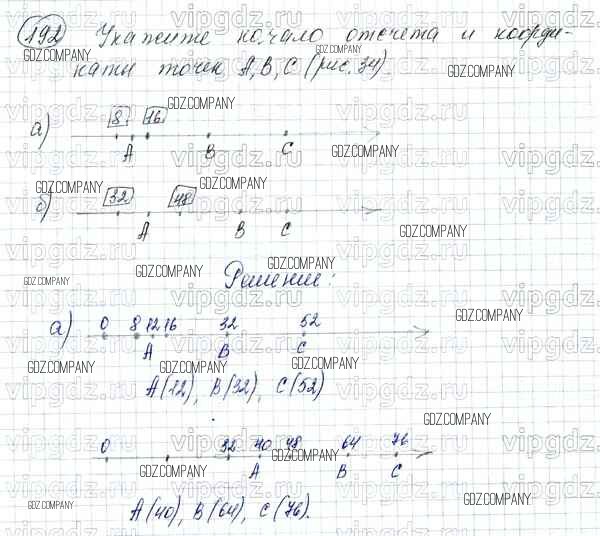 192 Укажите начало отсчета и коорди-
наты точек A, B, C (рис. 34).
а) 8 16
A B C
б) 32 48
A B C
Решение:
а) 0 8 12 16 32 52
A B C
A(12), B(32), C(52)
0 32 40 48 64 76
A B C
A(40), B(64), C(76).
vipgdz.ru
GDZ.COMPANY